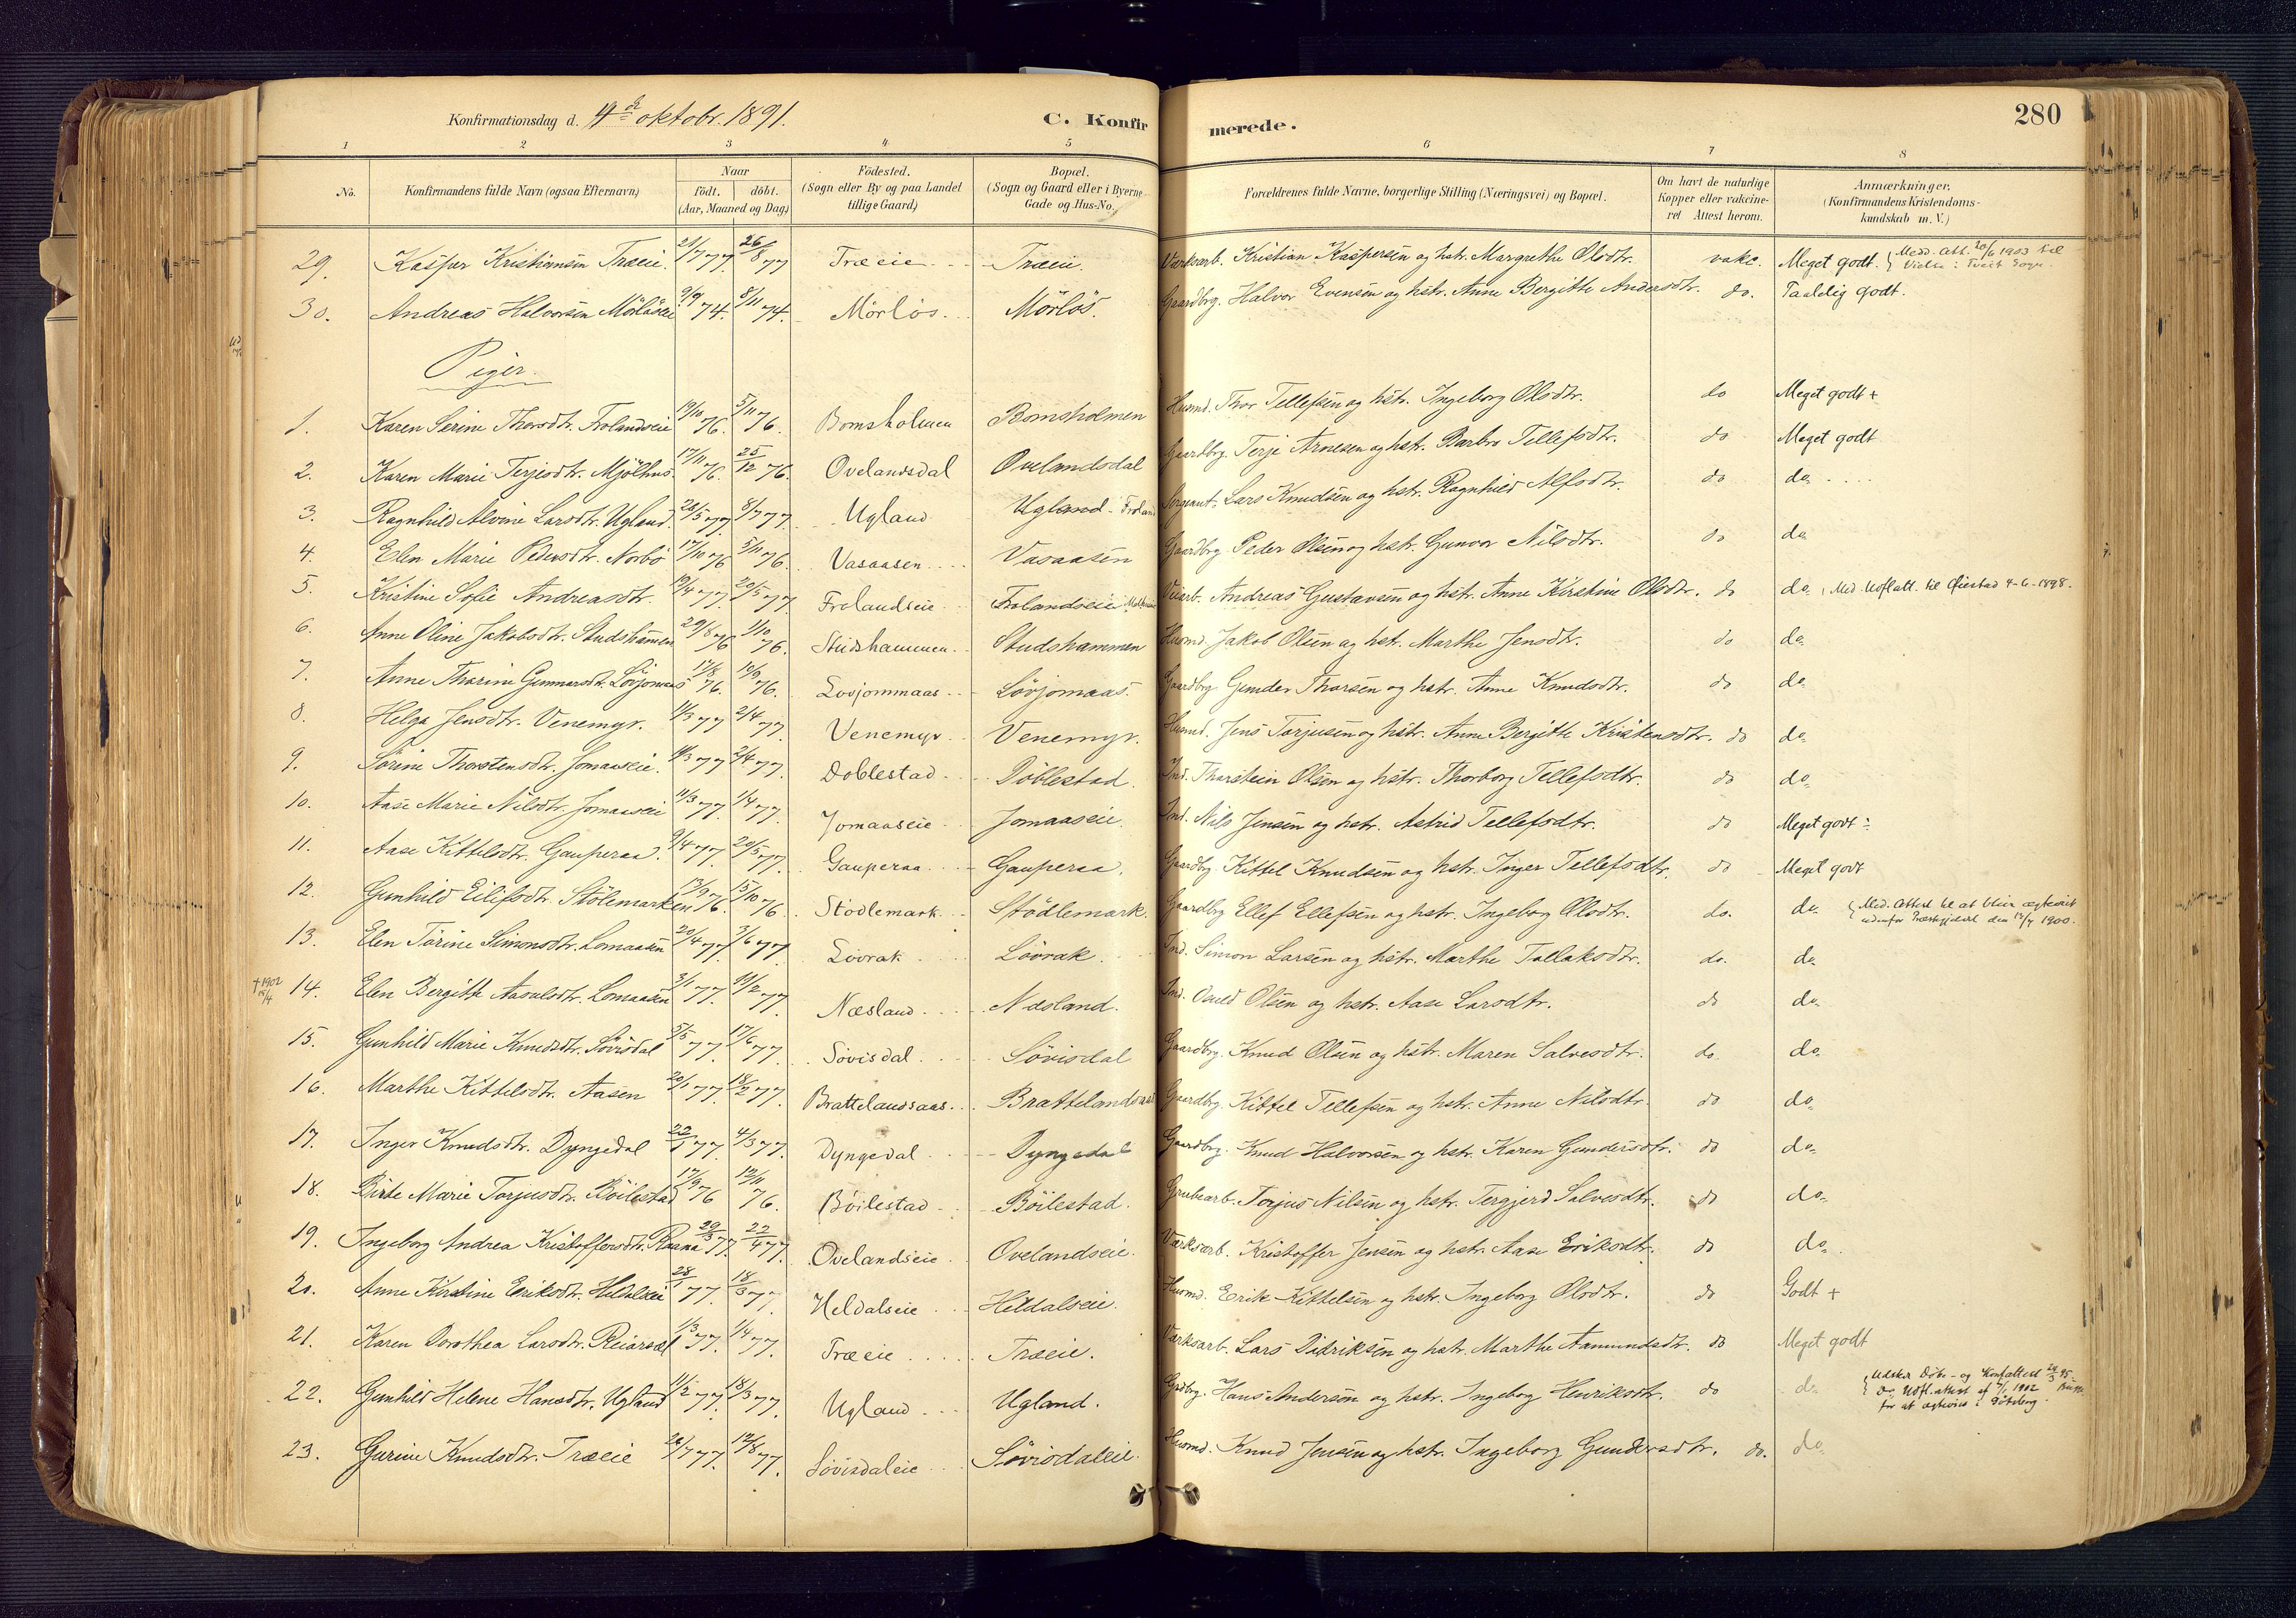 Konfirmationsdag d. 4de oktobr. 1891.
C. Konfir
merede.
280
1 2 3 4 5 6 7 8
No.
Konfirmandens fulde Navn (ogsaa Efternavn)
Naar
Födt. döbt.
(Aar, Maaned og Dag)
Födested.
(Sogn eller By og paa Landet
tillige Gaard)
Bopæl.
(Sogn og Gaard eller i Byerne
Gade og Hus-No.
Forældrenes fulde Navne, borgerlige Stilling (Næringsvei) og Bopæl.
Om havt de naturlige
Kopper eller vakcine-
ret Attest herom.
Anmærkninger.
(Konfirmandens Kristendoms-
kundskab m. V.)
29. Kasper Kristiansen Træeie. 21/7 77 26/8 77 Træeie Træeie. Værksarb. Kristian Kaspersen og hstr. Margrethe Olsdtr. vakc. Meget godt. { Medd. Att. 20/6 1903 til
Vielse i Tveit Sogn.
30. Andreas Halvorsen Mörlöseie 9/9 74. 8/11 74. Mörlös. Mörlös. Gaardbrg. Halvor Evensen og hstr. Anne Bergitte Andersdtr. do. Taalelig godt.
Piger.
1. Karen Serine Thorsdtr. Frolandseie 19/10 76. 5/11 76. Bomsholmen Bomsholmen Husmd. Thor Tellefsen og hstr. Ingeborg Olsdtr. do Meget godt +
2. Karen Marie Terjesdtr. Mjölhus. 17/11 76. 25/12 76. Ovelandsdal Ovelandsdal Gaardbrg. Terje Arnesen og hstr. Barbro Tellefsdtr. do Meget godt
3. Ragnhild Alvine Larsdtr. Ugland. 28/5 77. 8/7 77. Ugland Ugland - Froland Sergeant. Lars Knudsen og hstr. Ragnhild Alfsdtr. do do
4. Elen Marie Pedersdtr. Norbö 17/10 76 5/11 76. Vasaasen Vasaasen Gaardbrg. Peder Olsen og hstr. Gunvor Nilsdtr. do do
5. Kristine Sofie Andreasdtr. 19/4 77. 20/5 77. Frolandseie Frolandseie Veiarb. Andreas Gustavsen og hstr. Anne Kirstine Olsdtr. do do. Med. Udfl.att. til Øiestad 4-6-1898.
6. Anne Oline Jakobsdtr. Studshammen 29/8 76 1/10 76. Studshammen Studshammen Husmd. Jakob Olsen og hstr. Marthe Jensdtr. do do.
7. Anne Tharine Gunnarsdtr. Lövjomaas 17/8 76. 10/9 76. Lovjommaas Lövjomaas. Gaardbrg Gunder Tharsen og hstr. Anne Knudsdtr. do do
8. Helga Jensdtr. Venemyr. 11/3 77 2/4 77. Venemyr Venemyr. Husmd. Jens Torjusen og hstr. Anne Bergitte Kristensdtr. do do.
9. Sörine Thorstensdtr. Jomaaseie. 11/3 77 2/4 77. Doblestad Döblestad. Ind. Thorstein Olsen og hstr. Thorborg Tellefsdtr. do do.
10. Aase Marie Nilsdtr. Jomaaseie 11/3 77. 1/4 77. Jomaaseie Jomaaseie. Ind. Nils Jensen og hstr. Astrid Tellefsdtr. do Meget godt ÷
11. Aase Kittelsdtr. Gauperaa. 9/4 77. 20/5 77. Gauperaa Gauperaa. Gaardbrg Kittel Knudsen og hstr. Inger Tellefsdtr. do Meget godt
12. Gunhild Eilifsdtr. Stölemarken 13/9 76. 15/10 76 Stödlemark Stödlemark. Gaardbrg Ellef Ellefsen og hstr. Ingeborg Olsdtr. do. do. { Med. Attest til at blive ægteviet
udenfor Præstegjeldet den 13/4 1900.
13. Elen Törine Simonsdtr. Lomaasen 20/4 77 3/6 77 Lövrak Lövrak. Ind. Simon Larsen og hstr. Marthe Tallaksdtr. do. do.
†1902 15/4 14. Elen Bergitte Aasulsdtr. Lomaasen 3/1 77. 11/2 77. Næsland Næsland. Ind. Osuld Olsen og hstr. Aase Larsdtr. do do.
15. Gunhild Marie Knudsdtr. Sövisdal 5/5 77. 17/6 77. Sövisdal Sövisdal Gaardbrg. Knud Olsen og hstr. Maren Salvesdtr. do. do.
16. Marthe Kittelsdtr. Aasen 20/1 77. 18/2 77. Brattelandsaas Brattelandsaas Gaardbrg. Kittel Tellefsen og hstr. Anne Nilsdtr. do do.
17. Inger Knudsdtr. Dyngedal 22/1 77. 4/3 77. Dyngedal Dyngedal Gaardbrg. Knud Halvorsen og hstr. Karen Gundersdtr. do do.
18. Birte Marie Torjusdtr. Böilestad 17/9 76 12/11 76. Böilestad Böilestad. Grubearb. Torjus Nilsen og hstr. Tergjerd Salvesdtr. do do.
19. Ingeborg Andrea Kristoffersdtr. 29/3 77. 22/4 77. Ovelandseie Ovelandseie. Værksarb. Kristoffer Jensen og hstr. Aase Eriksdtr. do do.
20. Anne Kirstine Eriksdtr. Heldalseie 28/1 77. 18/3 77. Heldalseie Heldalseie. Husmd. Erik Kittelsen og hstr. Ingeborg Olsdtr. do Godt +
21. Karen Dorothea Larsdtr. Reiersöl 1/3 77. 1/4 77. Træeie Træeie. Værksarb. Lars Didriksen og hstr. Marthe Aamundsdtr. do Meget godt
22. Gunhild Helene Hansdtr. Ugland 11/2 77. 18/3 77. Ugland Ugland. Grdbrg. Hans Andersen og hstr. Ingeborg Henriksdtr. do do { Udskr. Döbs- og Konfattest 29/3 95
Do. Udfl. attest af 7/1 1902
for at ægtevies i Göteborg.
23. Gurine Knudsdtr. Træeie 28/7 77. 12/8 77. Sövisdaleie Sövisdaleie. Husmd. Knud Jensen og hstr. Ingeborg Gundersdtr. do. do.